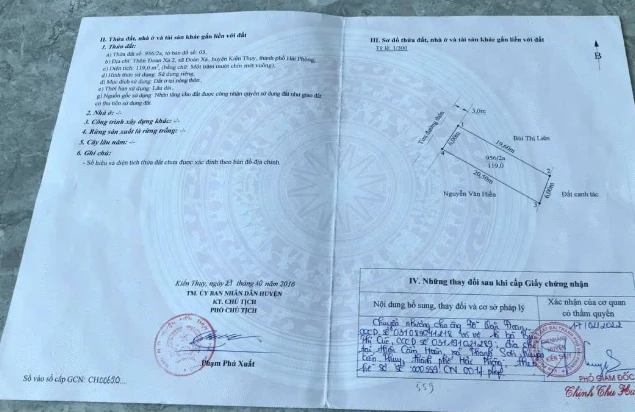 II. Thửa đất, nhà ở và tài sản khác gắn liền với đất
1. Thửa đất:
a) Thửa đất số: 956/2a, tờ bản đồ số: 03,
b) Địa chỉ: Thôn Đoan Xá 2, xã Đoàn Xá, huyện Kiến Thụy, thành phố Hải Phòng,
c) Diện tích: 119,0 m², (bằng chữ: Một trăm mười chín mét vuông),
d) Hình thức sử dụng: Sử dụng riêng,
đ) Mục đích sử dụng: Đất ở tại nông thôn,
e) Thời hạn sử dụng: Lâu dài,
g) Nguồn gốc sử dụng: Nhận tặng cho đất được công nhận quyền sử dụng đất như giao đất
có thu tiền sử dụng đất.
2. Nhà ở: -/-
3. Công trình xây dựng khác: -/-
4. Rừng sản xuất là rừng trồng: -/-
5. Cây lâu năm: -/-
6. Ghi chú:
- Số hiệu và diện tích thửa đất chưa được xác định theo bản đồ địa chính.
Kiến Thụy, ngày 21 tháng 10 năm 2016
TM. ỦY BAN NHÂN DÂN HUYỆN
KT. CHỦ TỊCH
PHÓ CHỦ TỊCH
Phạm Phú Xuất
Số vào sổ cấp GCN: CH00650
III. Sơ đồ thửa đất, nhà ở và tài sản khác gắn liền với đất
Tỷ lệ 1/300
B
3,0m
Trục đường thôn
1
Bùi Thị Liên
19,60m
6,00m
956/2a
119,0
2
20,50m
6,00m
Nguyễn Văn Hiển
Đất canh tác
3
IV. Những thay đổi sau khi cấp Giấy chứng nhận
Nội dung bổ sung, thay đổi và cơ sở pháp lý
Xác nhận của cơ quan
có thẩm quyền
Chuyển nhượng cho ông
CCCD số và vợ là bà Bùi
Thị CCCD số địa chỉ
tại xã Thanh Sơn, huyện
Kiến Thụy, thành phố Hải Phòng,
hồ sơ số CN
PHÓ GIÁM ĐỐC
Trịnh Thu
559